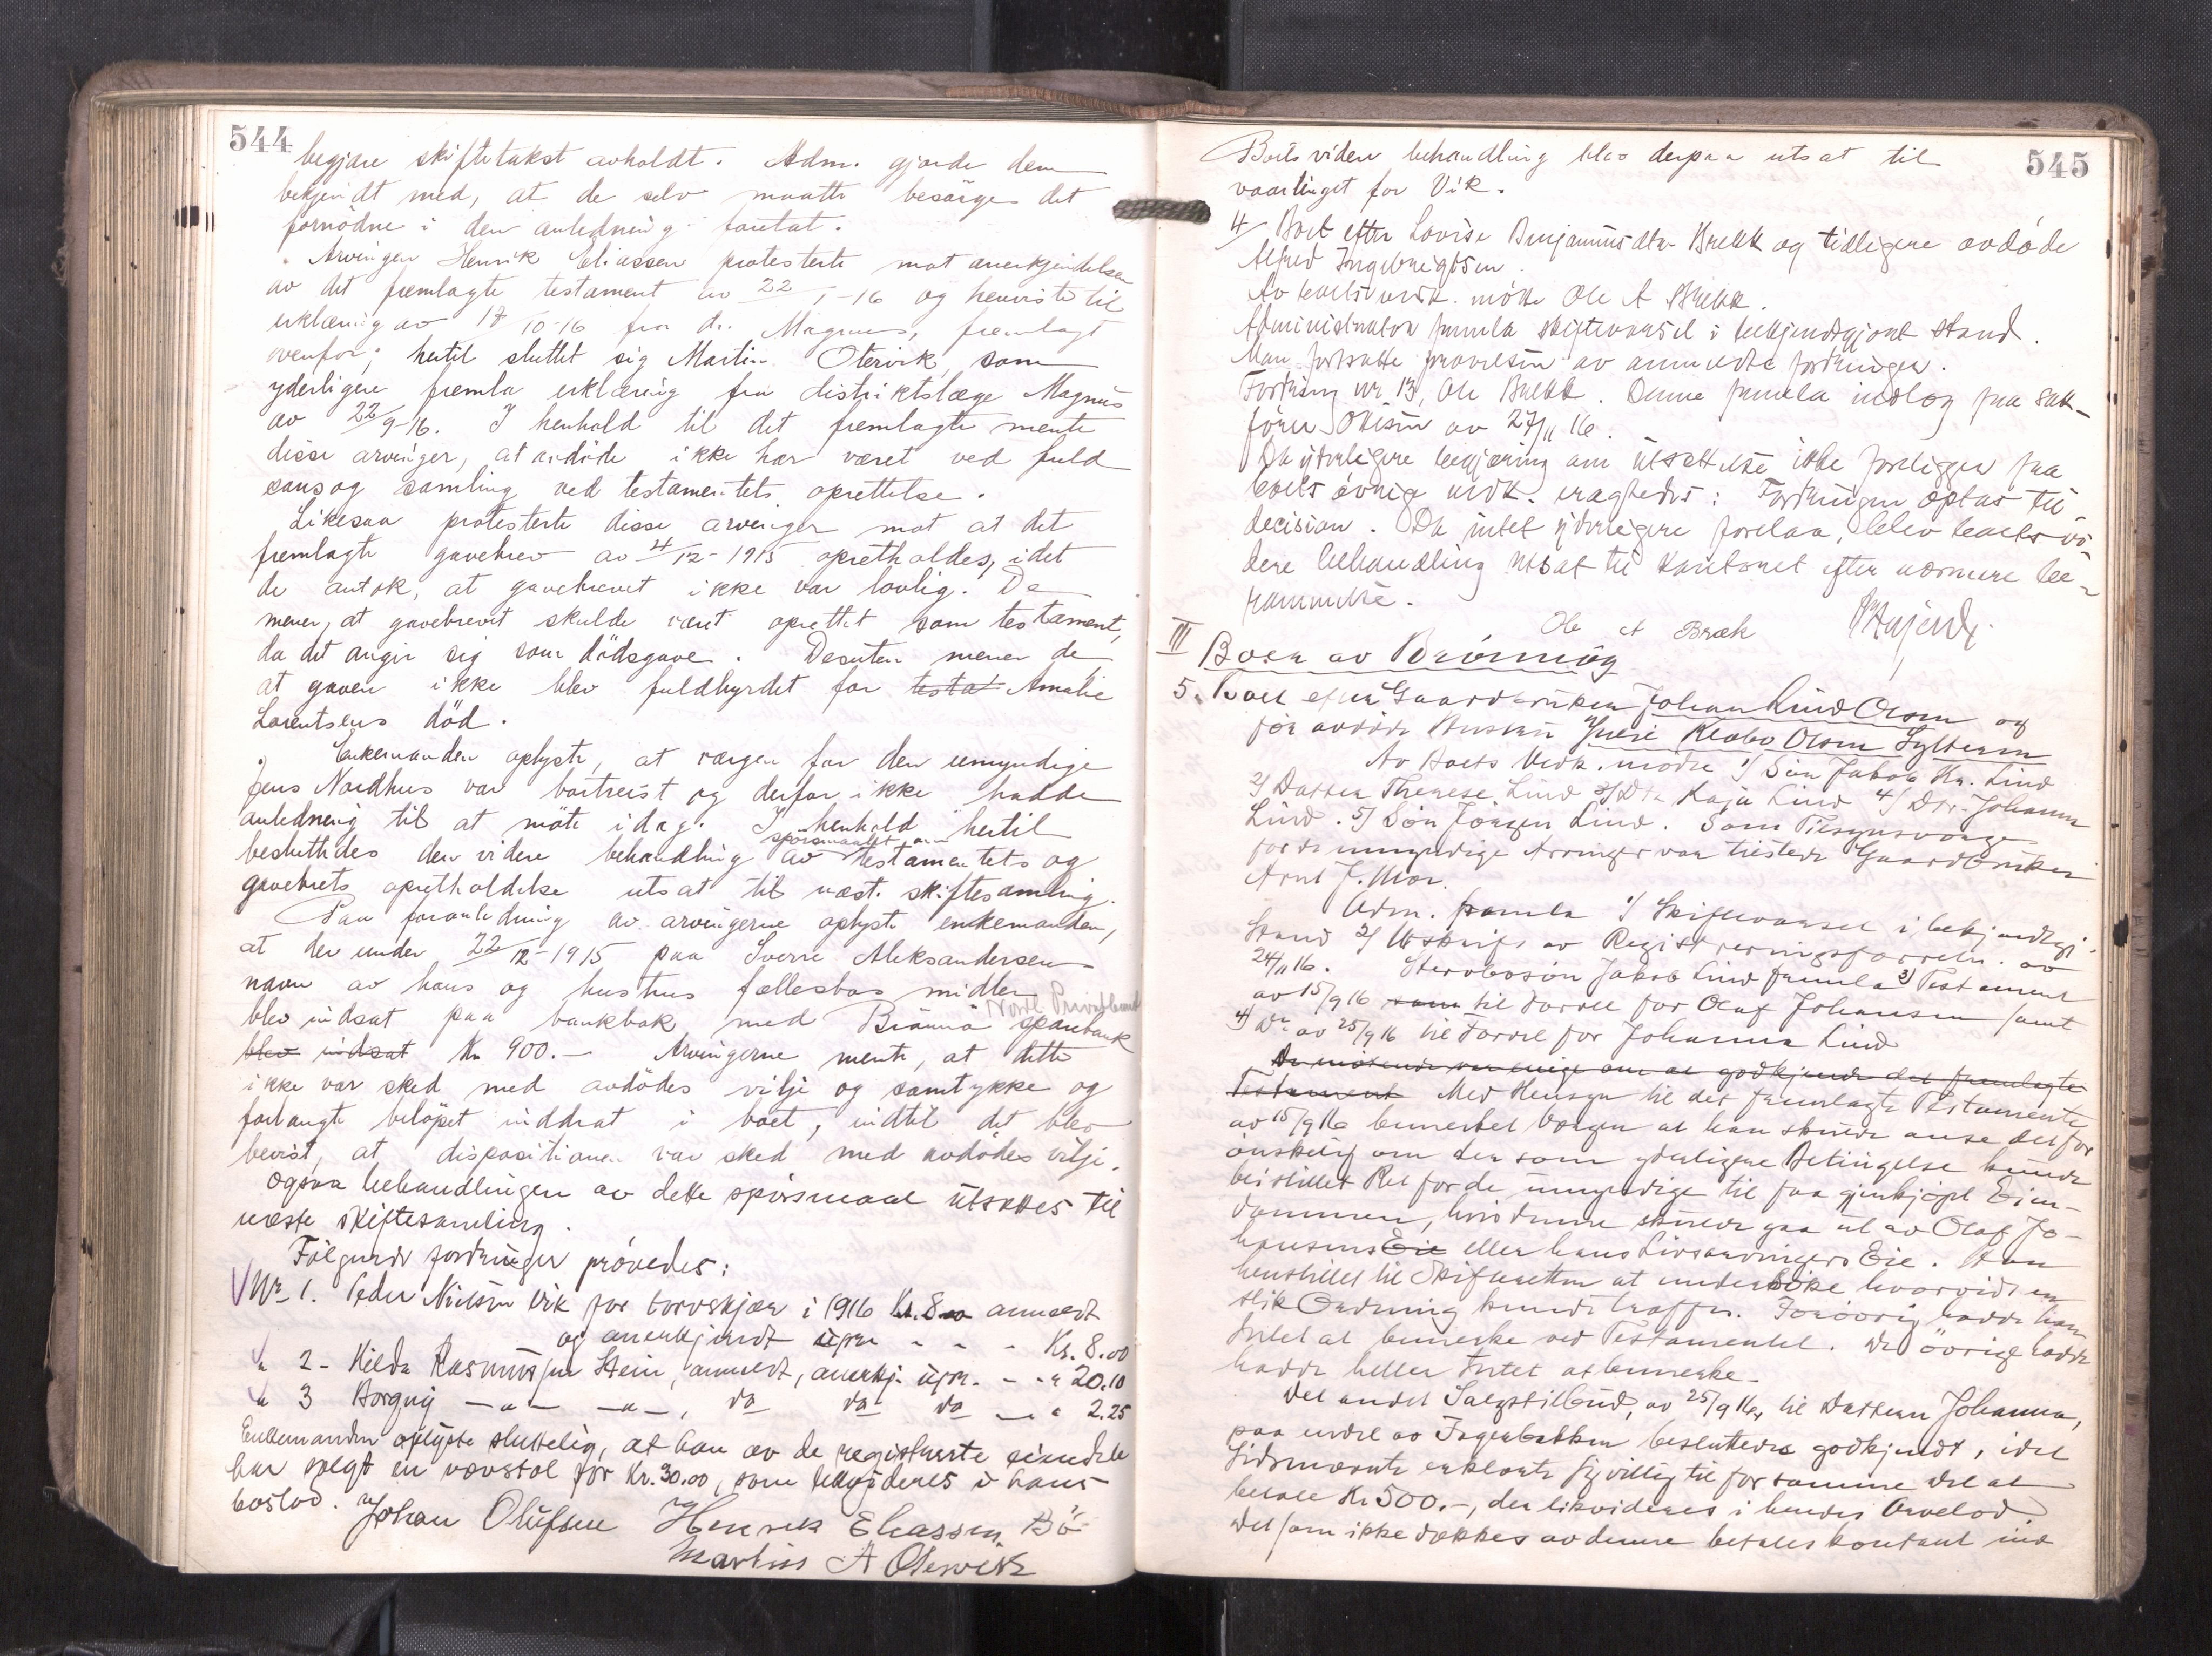 544
begjære skiftetakst avholdt. Adm. gjorde dem
bekjendt med, at de selv maatte besörge det
fornödne i den anledning foretat.
Arvingen Henrik Eliassen protesterte mot anerkjendelsen
av det fremlagte testament av 22/1-16 og henviste til
erklæring av 18/10-16 fra dr. Magnus, fremlagt
ovenfor; hertil sluttet sig Martin Otervik, som
yderligere fremla erklæring fra distriktslæge Magnus
av 22/9-16. I henhold til det fremlagte mente
disse arvinger, at avdöde ikke har været ved fuld
sans og samling ved testamentets oprettelse.
Likesaa protesterte disse arvinger mot at det
fremlagte gavebrev av 4/12-1915 opretholdes, idet
de antok, at gavebrevet ikke var lovlig. De
mener, at gavebrevet skulde været oprettet som testament,
da det angir sig som dödsgave. Desuten mener de
at gaven ikke blev fuldbyrdet för testa Amalie
Lorentsens död.
Enkemanden oplyste, at værgen for den umyndige
Jens Nordhus var bortreist og derfor ikke hadde
anledning til at möte idag. I henhold hertil
besluttedes den videre behandling av spörsmaalet om testamentets og
gavebrevets opretholdelse utsat til næst. skiftesamling.
Paa foranledning av arvingerne oplyste enkemanden,
at der under 22/12-1915 paa Sverre Aleksandersens
navn av hans og hustrus fællesbos midler
Nordl. Privatbank
blev indsat paa bankbok med Brönnö sparebank
blev indsat Kr 900.- Arvingerne mente, at dette
ikke var sked med avdödes vilje og samtykke og
forlangte belöpet inddrat i boet, indtil det blev
bevist, at dispositionen var sked med avdödes vilje.
Ogsaa behandlingen av dette spörsmaal utsættes til
næste skiftesamling.
Fölgende fordringer prövedes:
Nr. 1. Peder Nielsen Vik for torvskjær i 1916 Kr. 8.00 anmeldt
og anerkjendt upr. - - - Kr. 8.00
" 2 - Hilda Rasmussen Stein, anmeldt, anerkj. upr. - - " 20.10
" 3 Borgvig —"— —"—, do do do — " 2.25
Enkemanden oplyste sluttelig, at han av de registrerte eiendele
har solgt en vævstol for Kr. 30.00, som likvideres i hans
boslod.
Johan Olufsen Henrik Eliassen Bö
Martin A Otervik
545
Boets videre behandling blev derpaa utsat til
vaartinget for Vik.
4/ Boet efter Lovise Benjaminsdtr Brekk og tidligere avdöde
Alfred Ingebrigtsen.
Av boets vedk. mötte Ole A Brekk.
Administrator fremla skiftevarsel i bekjendtgjort stand.
Man fortsatte prövelsen av anmeldte fordringer.
Fordring nr 13, Ole Brekk. Denne fremla indlæg fra sak-
förer Ottesen av 27/11 16.
Da yderligere begjæring om utsættelse ikke foreligger fra
boets övrige vedk. eragtedes: Fordringen optas til
decision. Da intet yderligere forelaa, blev boets vi-
dere behandling utsat til kontoret efter nærmere be-
rammelse.
Ole A Bræk
III Boer av Brönnöy
5. Boet efter Gaardbruker Johan Lind Olsen og
för avdöde Hustru
Av Boets Vedk. mödte 1/ Sön Jakob Kr. Lind
2/ Datter Therese Lind 3/ Dtr Kaja Lind 4/ Dtr. Johanna
Lind. 5/ Sön Jörgen Lind. Som Tilsynsværge
for de umyndige Arvinger var tilstede Gaardbruker
Arnt J. Moe.
Adm. fremla 1/ Skiftevarsel i bekjendtgj.
Stand 2/ Utskrift av Registreringsforretn. av
24/11 16. Stervbosön Jakob Lind fremla 3/ Testament
av 15/9 16 som til Fordel for Olaf Johansen samt
4/ Do av 25/9 16 til Fordel for Johanna Lind
De mötende var enige om at godkjende det fremlagte
Testament Med Hensyn til det fremlagte Testamente
av 15/9 16 bemerket Værgen at han skulde anse det for
önskelig om der som yderligere Betingelse kunde
bli stillet Ret for de umyndige til faa gjenkjöpt Eien-
dommen, hvis denne skulde gaa ut av Olaf Jo-
hansens Eie eller hans Livsarvingers Eie. Han
henstillet til Skifteretten at undersöke hvorvidt en
slik Ordning kunde træffes. Forövrig hadde han
Intet at bemerke ved Testamentet. De övrige hadde
hadde heller Intet at bemerke.
Det andet Salgstilbud, av 25/9 16, til Datteren Johanna,
paa endel av besluttedes godkjendt, idet
Sidstnævnte erklærte sig villig til for samme del at
betale Kr. 500.-, der likvideres i hendes Arvelod.
Det som ikke dækkes av denne betales kontant ind